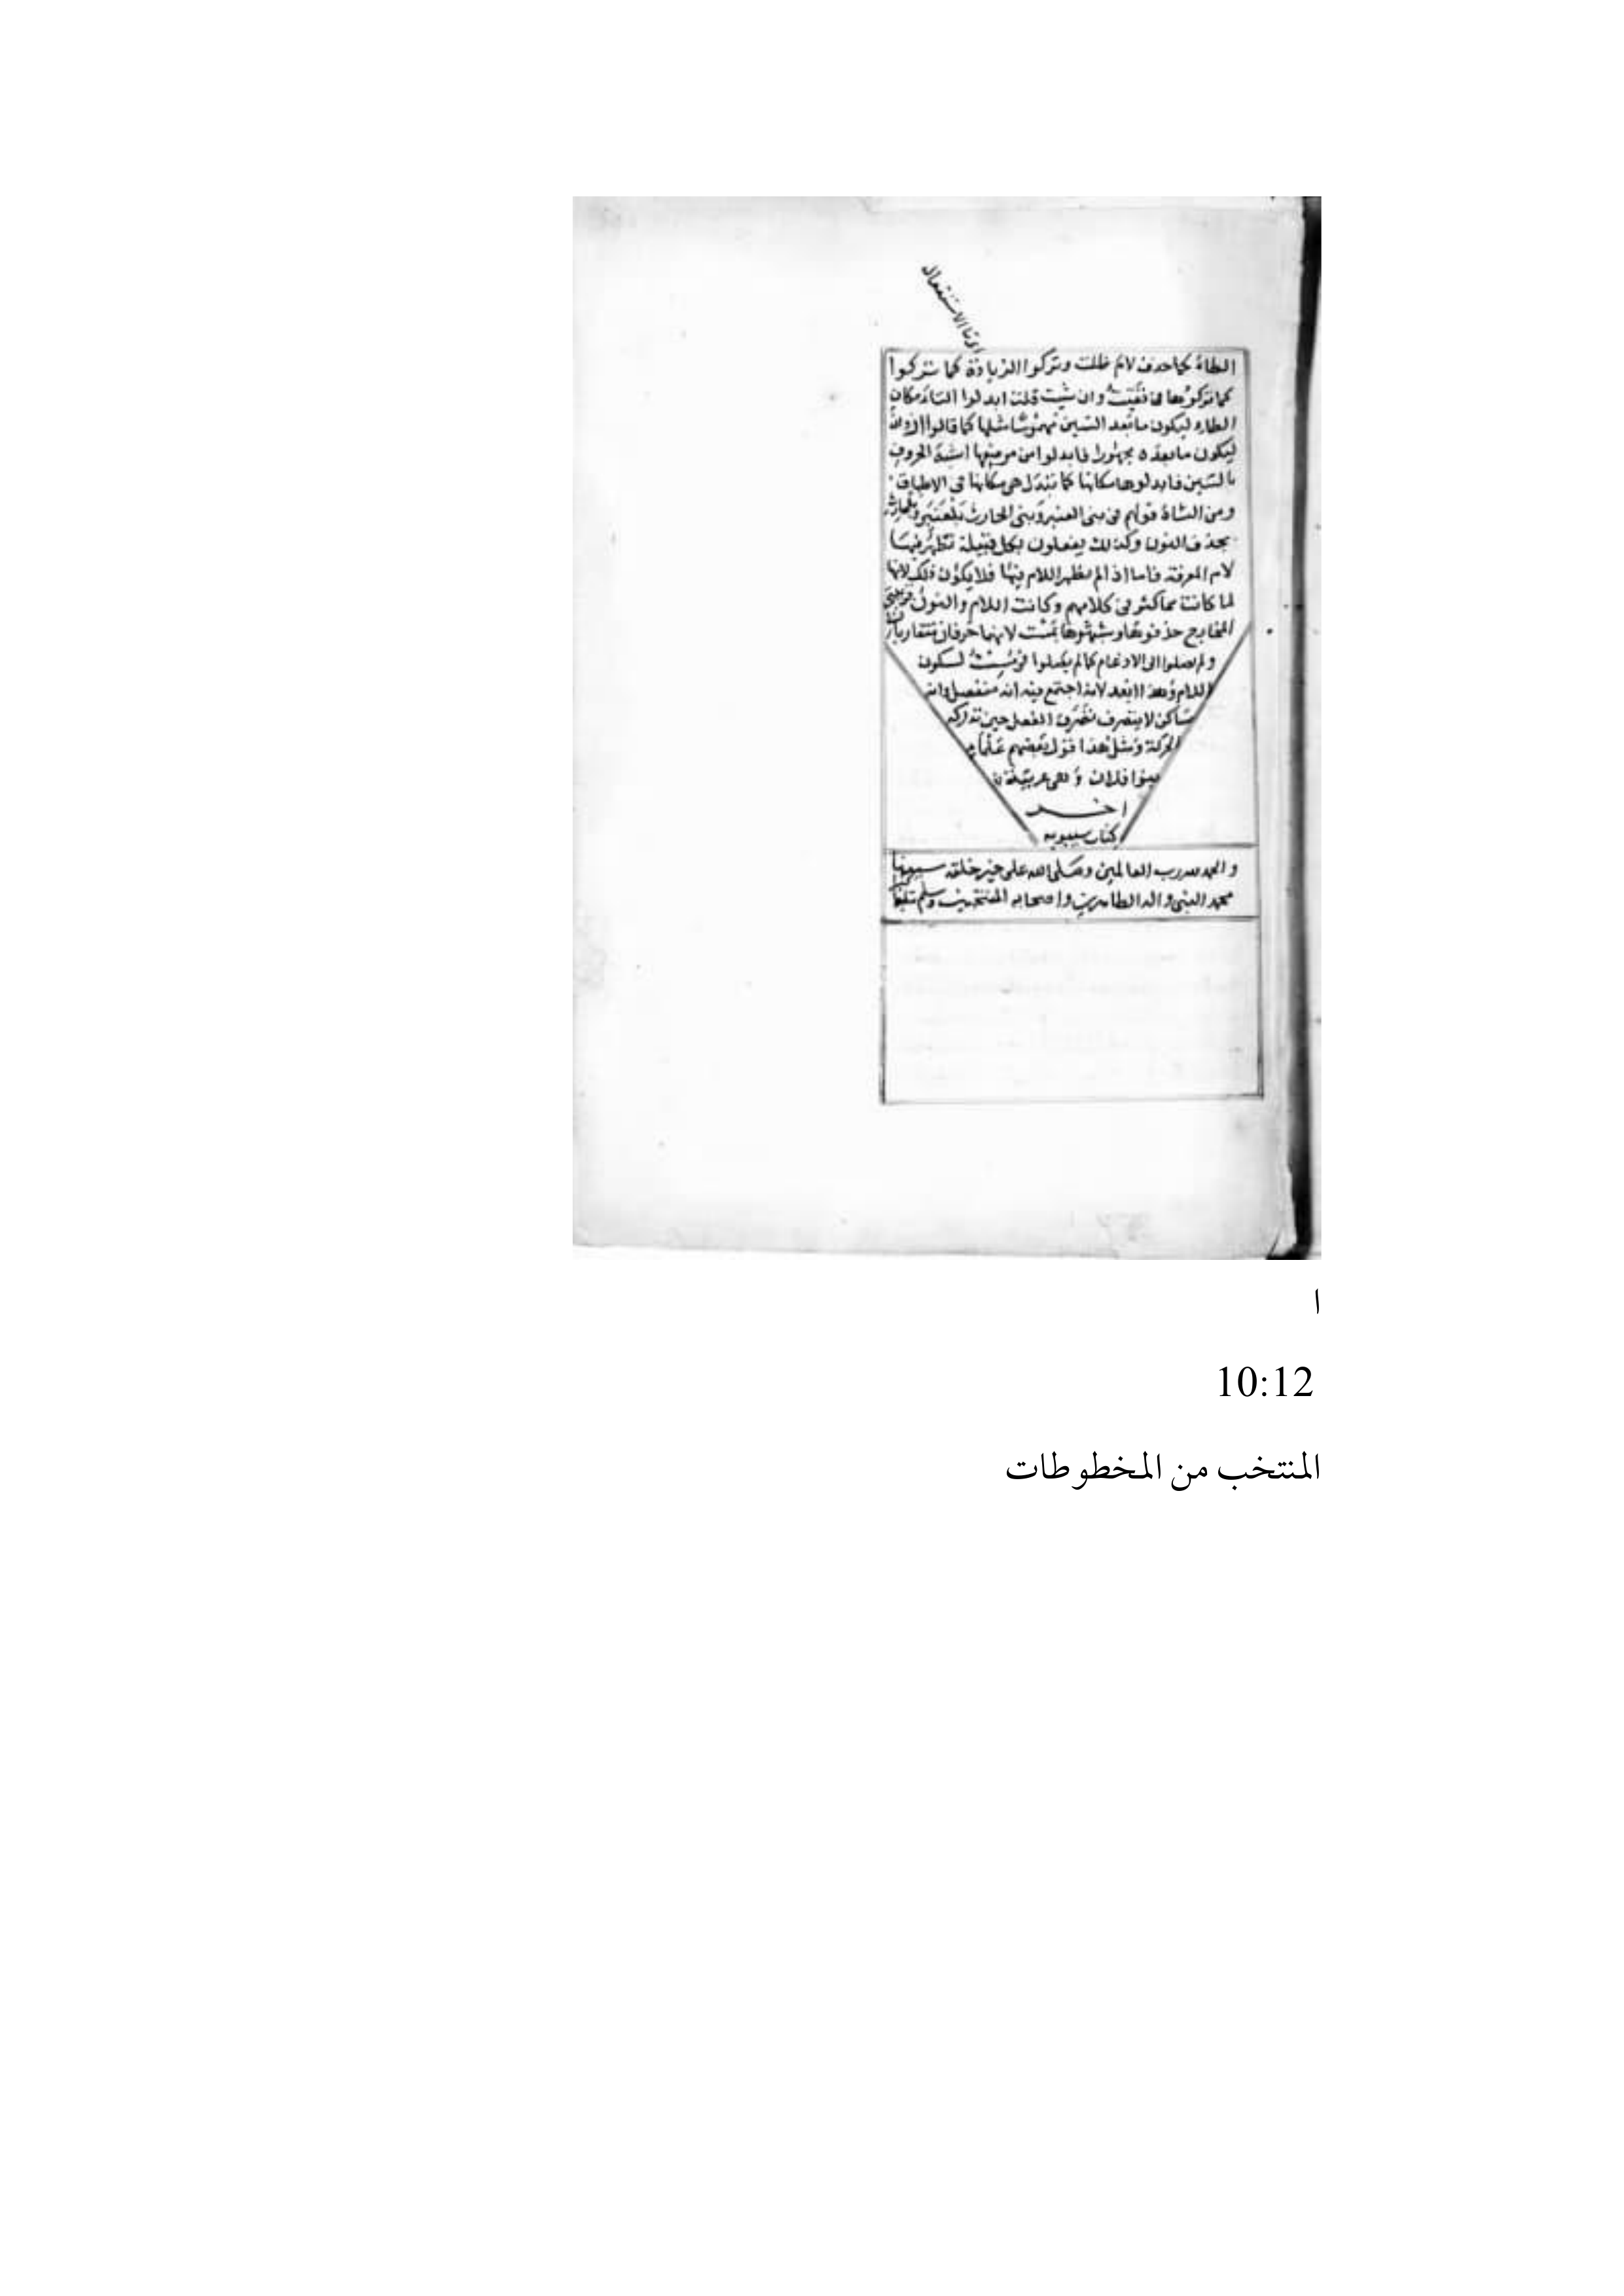 او تا الاستفعال
الطاء كما حذف لام ظلت وتركوا الزيادة كما تركوا
كما تركوها في تقيت وان شيت قلت ابدلوا التاء مكان
الطاء ليكون ما بعد السين مهموسا مثلها كما قالوا ازدان
ليكون ما بعده مجهورا فابدلوا من موضعها اشبه الحروف
بالسين فابدلوها مكانها كما تبدل هي مكانها في الاطباق
ومن الشاذ قولهم في بني العنبر وبني الحارث بلعنبر وبلحارث
بحذف النون وكذلك يفعلون بكل قبيلة تظهر فيها
لام المعرفة فاما اذا لم يظهر اللام فيها فلا يكون ذلك لانها
لما كانت مما كثر في كلامهم وكانت اللام والنون قريبتي
المخارج حذفوها وشبهوها بمست لانهما حرفان متقاربان
ولم يصلوا الى الادغام كما لم يصلوا في مسست لسكون
اللام وهذا ابعد لانه اجتمع فيه انه منفصل وانه
ساكن لا يتصرف تصرف الفعل حين تدركه
الحركة ومثل هذا قول بعضهم علماء
بنوا فلان وهي عربية
اخر
كتاب سيبويه
والحمد لله رب العالمين وصلى الله على خير خلقه
محمد النبي واله الطاهرين واصحابه المنتجبين وسلم
ا
10:12
المنتخب من المخطوطات